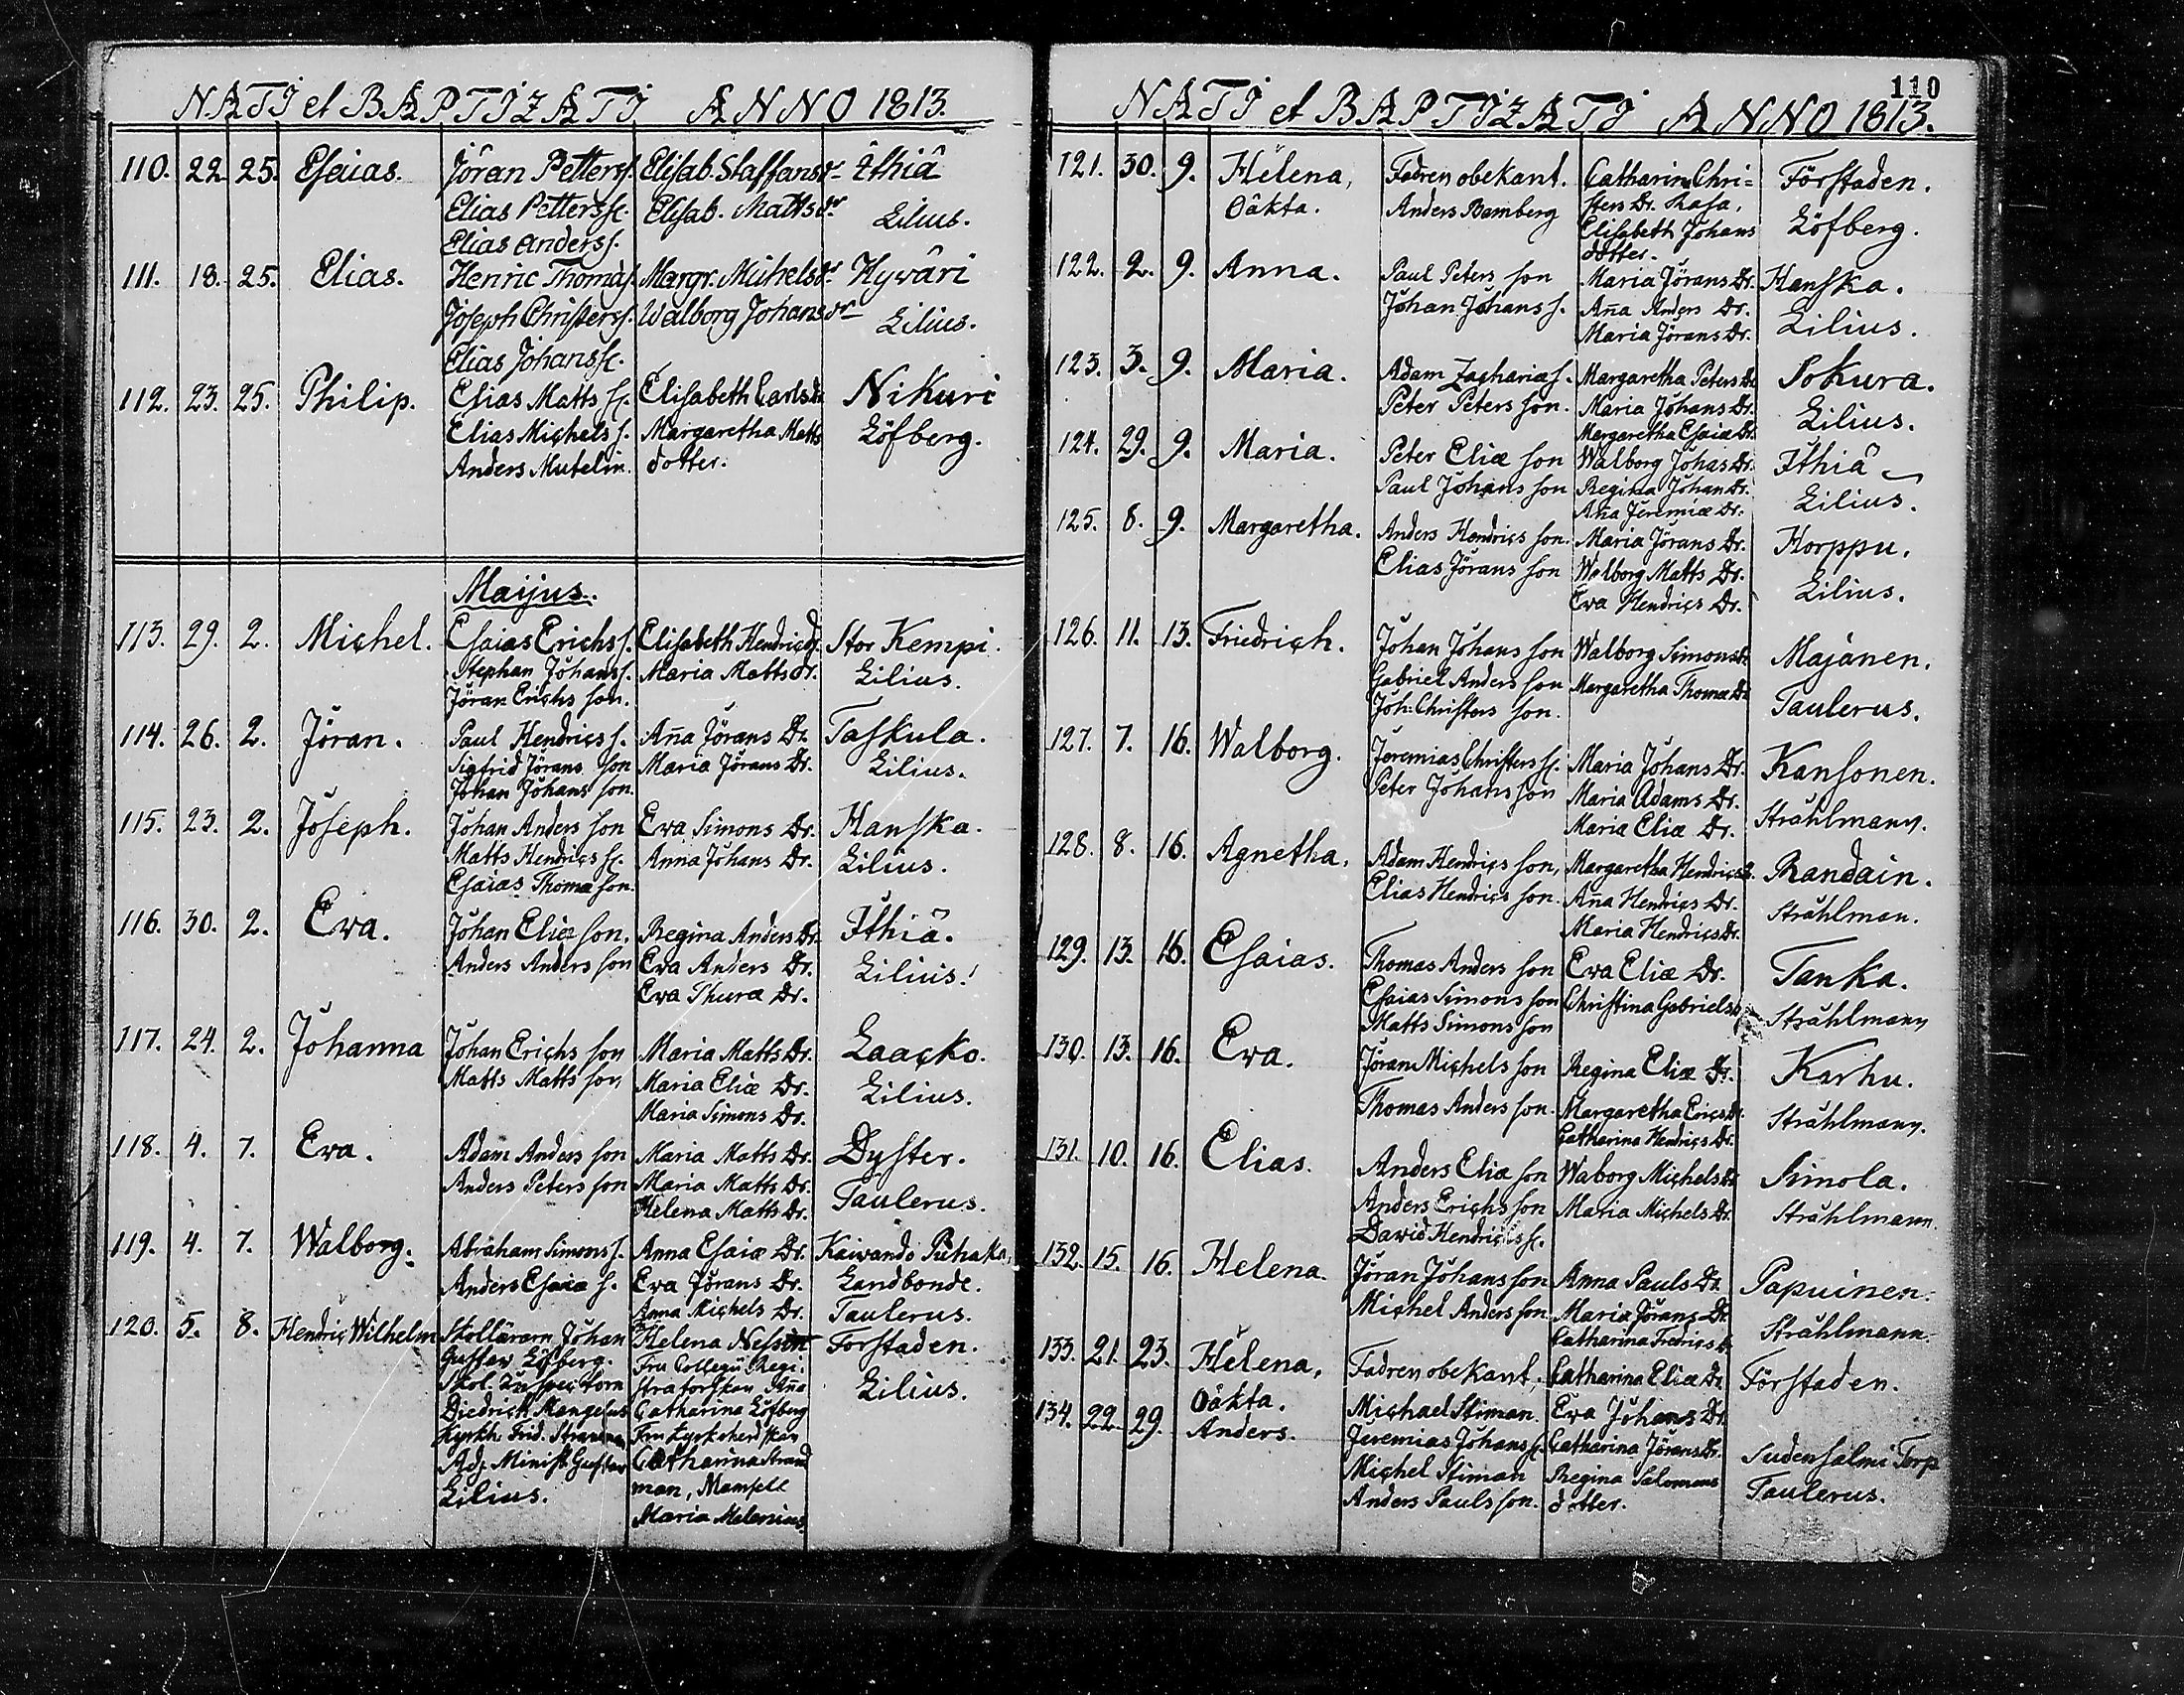 NATI et BAPTIZATI ANNO 1813.
110. 22. 25. Esaias. Jöran Petterss. Elisab. Staffansdr Ithiä
Elias Petterss. Elisab. Mattsdr Lilius.
Elias Anderss.
111. 18. 25. Elias. Henric Thomæs. Margr. Michelsdr Hywäri
Joseph Christerss. Walborg Johansdr Lilius.
Elias Johanss.
112. 23. 25. Philip. Esias Matts S. Elisabeth Carlsdr Nikuri
Elias Michels s. Margaretha Matts Löfberg.
Anders Mutelin. dotter.
Maijus.
113. 29. 2. Michel. Esaias Erichs s. Elisabeth Hendricsdr. Stor Kempi.
Stephan Johans s. Maria Mattsdr. Lilius.
Jöran Erichs son.
114. 26. 2. Jöran. Paul Hendrics s. Ana Jörans Dr. Taskula.
Sigfrid Jörans son Maria Jörans Dr. Lilius.
Johan Johans son.
115. 23. 2. Joseph. Johan Anders son Eva Simons Dr. Hanska.
Matts Hendrics S. Anna Johans Dr. Lilius.
Esaias Thomæ son.
116. 30. 2. Eva. Johan Eliæ son. Regina Anders Dr. Ithiä.
Anders Anders son Eva Anders Dr. Lilius.
Eva Thura Dr.
117. 24. 2. Johanna Johan Erichs son Maria Matts Dr. Laacko.
Matts Matts son Maria Eliæ Dr. Lilius.
Maria Simons Dr.
118. 4. 7. Eva. Adam Anders son Maria Matts Dr. Dyster.
Anders Peters son Maria Matts Dr. Taulerus.
Helena Matts Dr.
119. 4. 7. Walborg. Abraham Simons s. Anna Esaiæ Dr. Kaivando Puhaka,
Anders Esaiæ s. Eva Jörans Dr. Landbonde.
Anna Michels Dr. Taulerus.
120. 5. 8. Hendric Wilhelm Skollärarn Johan Helena Nessin Förstaden.
Gustav Löfberg. Fru Collegii Regi-
Skol. Inspectorn stratorskan Ana Lilius.
Diedrich Mangelus Catharina Löfberg
Kyrkh. Frid. Fru Kyrkoherdskan
Adj. Minist. Gustav Catharina Strand
Lilius. man, Mamsell
Maria Melenius.
110
NATI et BAPTIZATI ANNO 1813.
121. 30. 9. Helena, Fadren obekant. Catharina Chri=
Oäkta. Anders Bamberg sters Dr. Rasa, Förstaden.
Elisabeth Johans Löfberg.
dotter.
122. 2. 9. Anna. Paul Peters son Maria Jörans Dr. Hanska.
Johan Johans s. Ana Anders Dr. Lilius.
Maria Jörans Dr.
123. 3. 9. Maria. Adam Zacharias s. Margaretha Peters Dr. Sokura.
Peter Peters son. Maria Johans Dr. Lilius.
Margaretha Esaiæ Dr.
124. 29. 9. Maria. Peter Eliæ son Walborg Johas Dr. Ithiä
Paul Johans son Regina Johan Dr. Lilius.
Ana Jeremiæ Dr.
125. 8. 9. Margaretha. Anders Hendrics son. Maria Jörans Dr. Horppu.
Elias Jörans son Walborg Matts Dr. Lilius.
Eva Hendrics Dr.
126. 11. 13. Friedrich. Johan Johans son Walborg Simons Dr. Majanen.
Gabriel Anders son Margaretha Thomæ Dr Taulerus.
Joh: Christers son.
127. 7. 16. Walborg. Jeremias Christers S. Maria Johans Dr. Kansonen.
Peter Johans son Maria Adams Dr. Stråhlmann.
Maria Eliæ Dr.
128. 8. 16. Agnetha. Adam Hendrics son, Margaretha Hendrics Dr. Randain.
Elias Hendrics son. Ana Hendrics Dr. Stråhlman.
Maria Hendrics Dr.
129. 13. 16. Esaias. Thomas Anders son Eva Eliæ Dr. Tanka.
Esaias Simons son Christina Gabriels Stråhlmann
Matts Simons son
130. 13. 16. Eva. Jöran Michels son Regina Eliæ Dr. Karhu.
Thomas Anders son. Margaretha Erics Dr. Stråhlmann.
Catharina Hendrics Dr.
131. 10. 16. Elias. Anders Eliæ son Waborg Michels Dr Simola.
Anders Erichs son Maria Michels Dr. Stråhlmann.
David Hendrics S.
132. 15. 16. Helena. Jöran Johans son Anna Pauls Dr. Papuinen.
Michel Anders son Maria Jörans Dr. Stråhlmann.
Catharina Fredrics Dr.
133. 21. 23. Helena, Fadren obekant, Catharina Eliæ Dr. Förstaden.
Oäkta.
134. 22. 29. Anders. Michael Stiman. Eva Johans Dr. Sudensalmi Torp
Jeremias Johans S. Catharina Jörans Dr. Taulerus.
Michel Stiman Regina Salomons
Anders Pauls son. dotter.